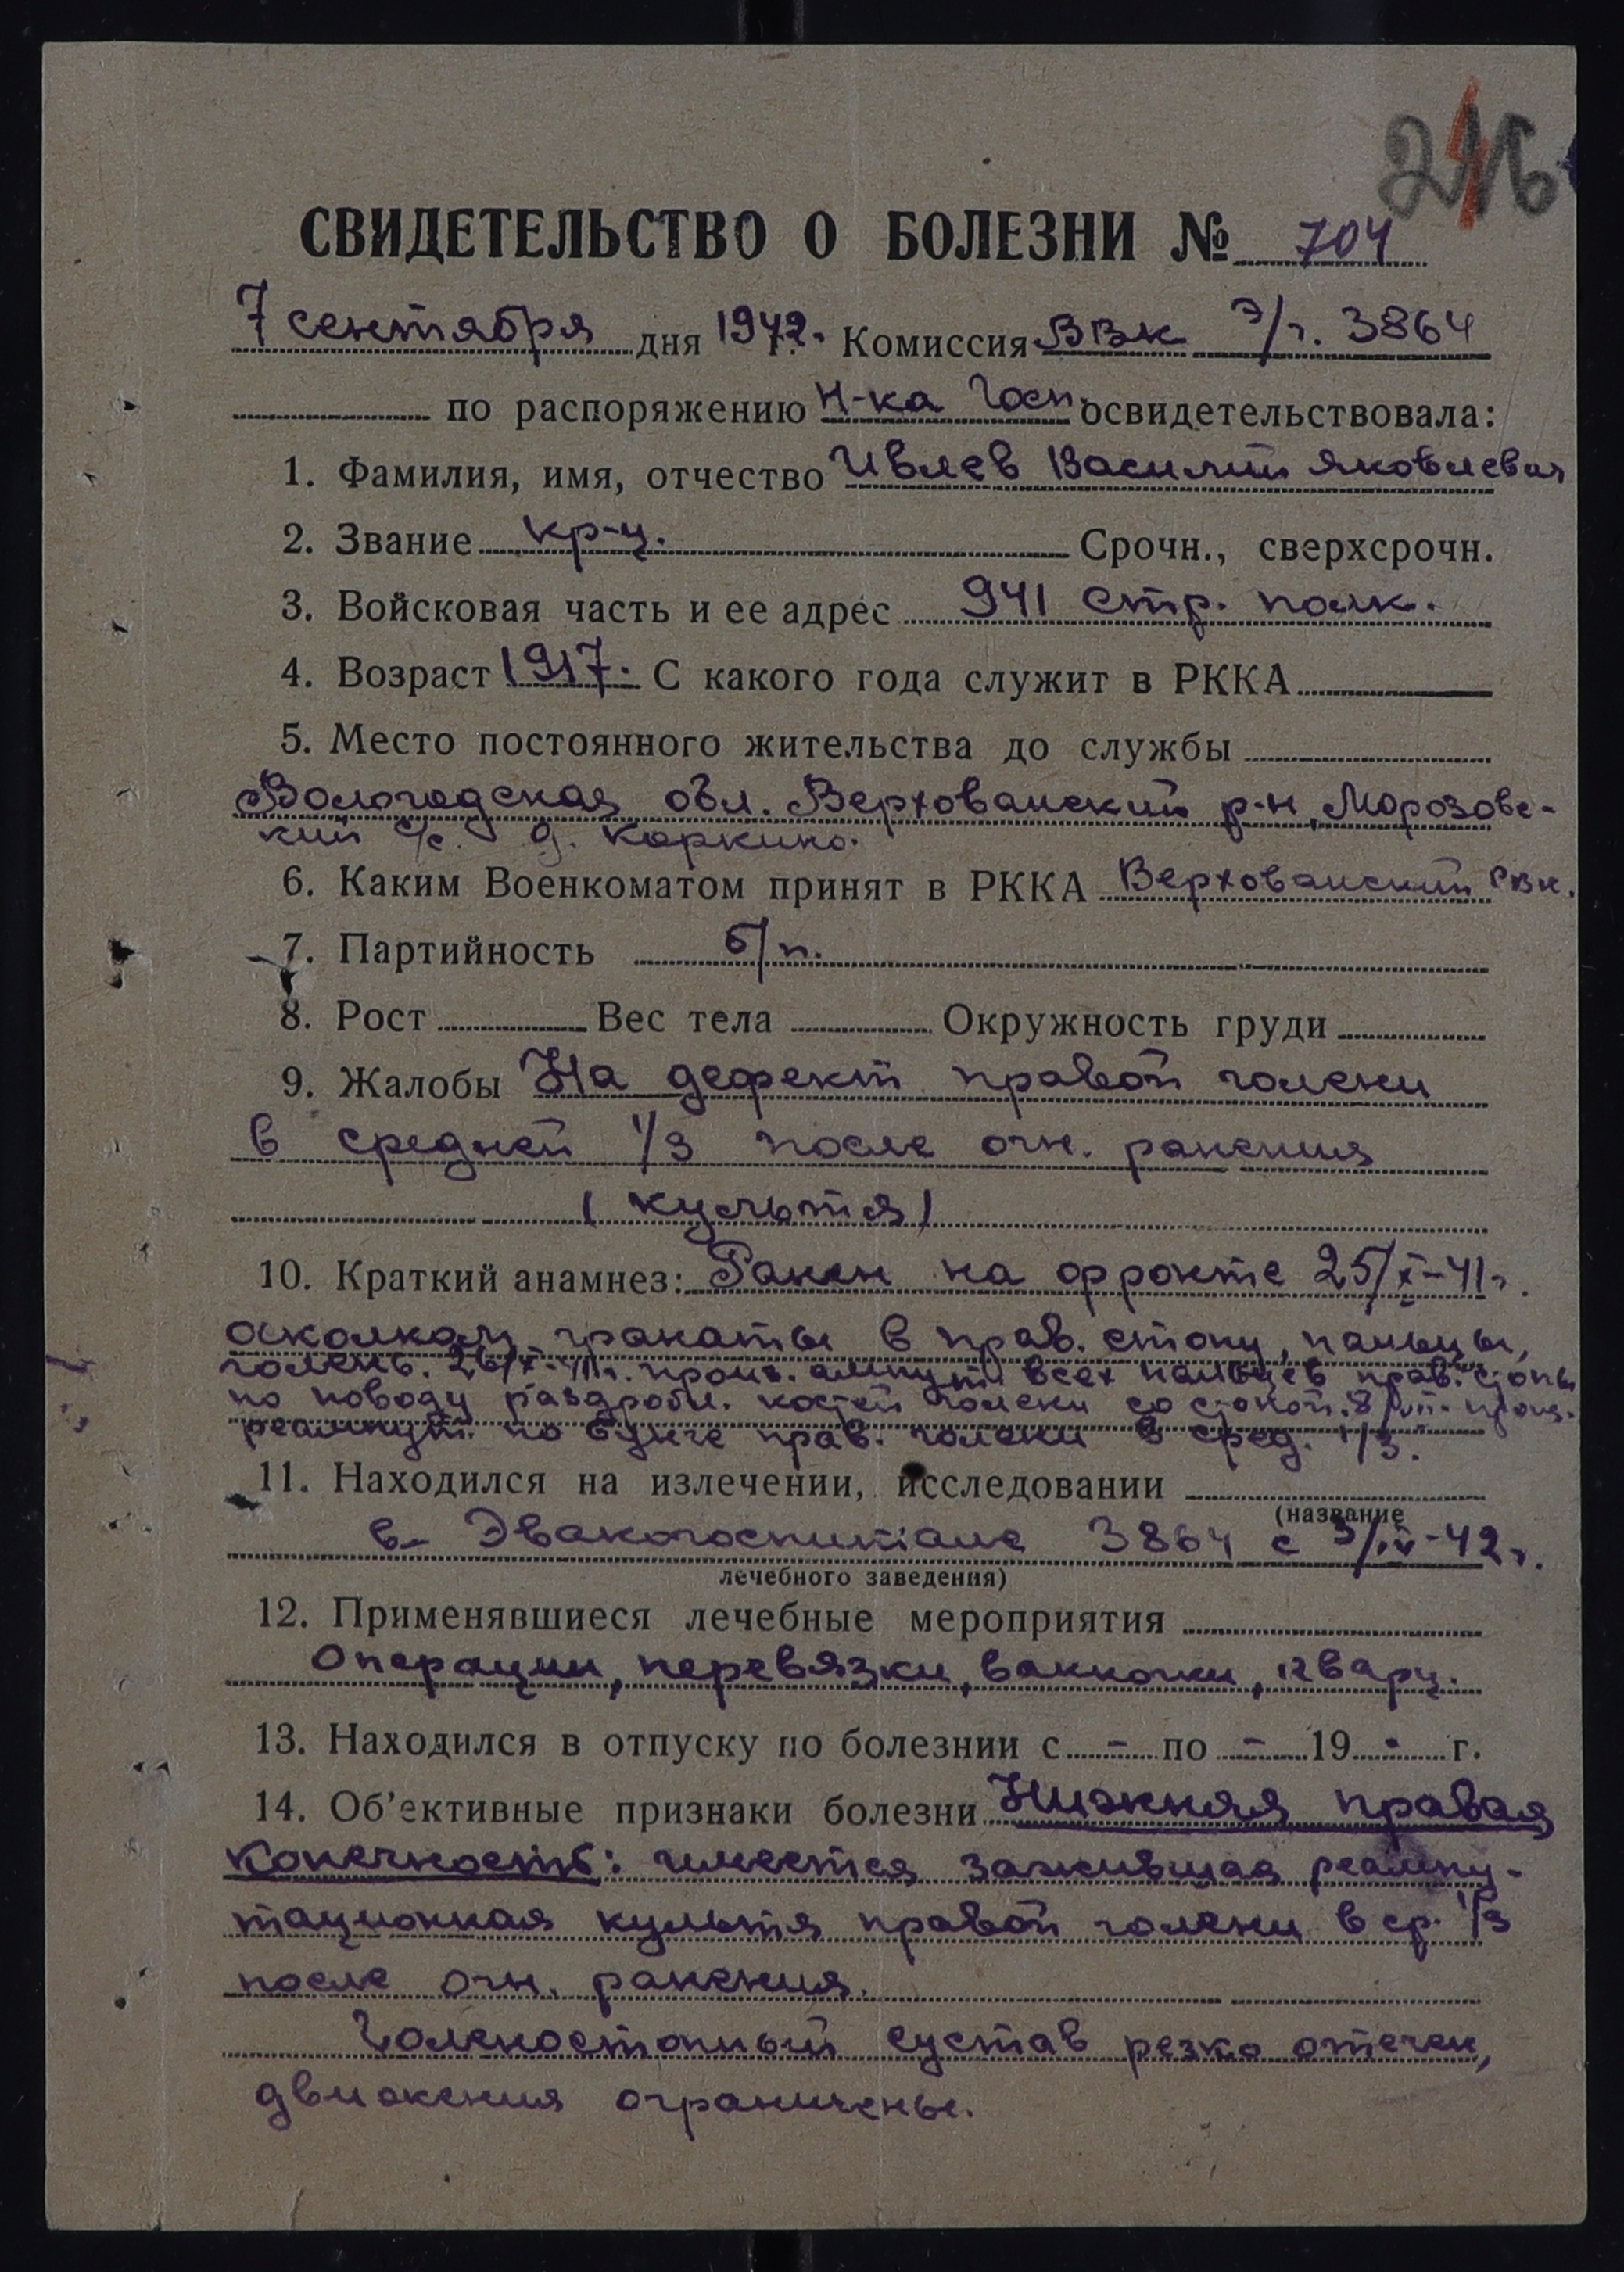 246
СВИДЕТЕЛЬСТВО О БОЛЕЗНИ № 704
7 сентября дня 1942 г. Комиссия ВВК э/г. 3864
по распоряжению Н-ка Госп. освидетельствовала:
1. Фамилия, имя, отчество Ивлев Василий Яковлевич
2. Звание кр-ц. Срочн., сверхсрочн.
3. Войсковая часть и ее адрес 941 стр. полк.
4. Возраст 1917. С какого года служит в РККА
5. Место постоянного жительства до службы
Вологодская обл. Верховажский р-н, Морозовс-
кий с/с. д. Каркино.
6. Каким Военкоматом принят в РККА Верховажский РВК.
7. Партийность б/п.
8. Рост Вес тела Окружность груди
9. Жалобы На дефект правой голени
в средней 1/3 после огн. ранения
(культя)
10. Краткий анамнез: Ранен на фронте 25/X-41г.
осколком гранаты в прав. стопу, пальцы,
голень. 26/X-41г. произ. ампут. всех пальцев прав. стопы
по поводу раздробл. костей голени со стопой. 8/VII- произ.
реампут. по Бунге прав. голени в сред. 1/3.
11. Находился на излечении, исследовании
(название
в Эвакогоспитале 3864 с 3/IV-42г.
лечебного заведения)
12. Применявшиеся лечебные мероприятия
Операции, перевязки, ванночки, кварц.
13. Находился в отпуску по болезнии с - по - 19 - г.
14. Об'ективные признаки болезни Нижняя правая
конечность: имеется зажившая реампу-
тационная культя правой голени в ср. 1/3
после огн. ранения.
Голеностопный сустав резко отечен,
движения ограничены.